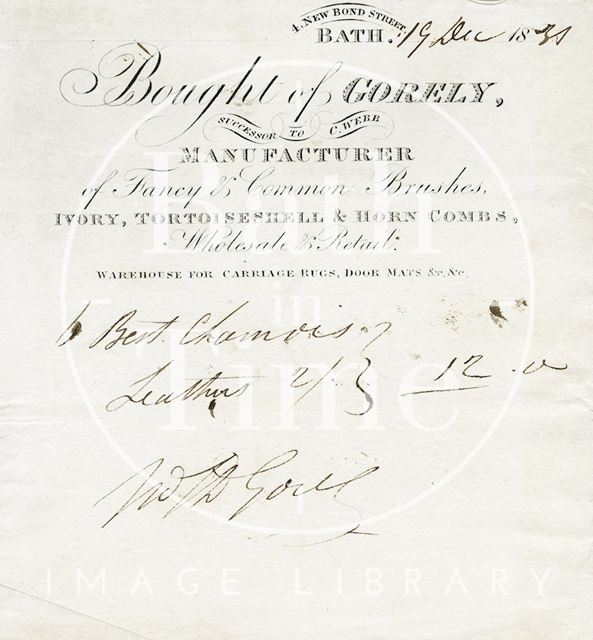 4. NEW BOND STREET,
BATH. 19 Dec 1831
Bought of GORELY,
SUCCESSOR TO C. WEBB
MANUFACTURER
of Fancy & Common Brushes,
IVORY, TORTOISESHELL & HORN COMBS,
Wholesale & Retail.
WAREHOUSE FOR CARRIAGE RUGS, DOOR MATS &c, &c,
6 Best Chamois
Leathers 2/ 12 . 0
Gorely
Bath
in
Time
IMAGE LIBRARY